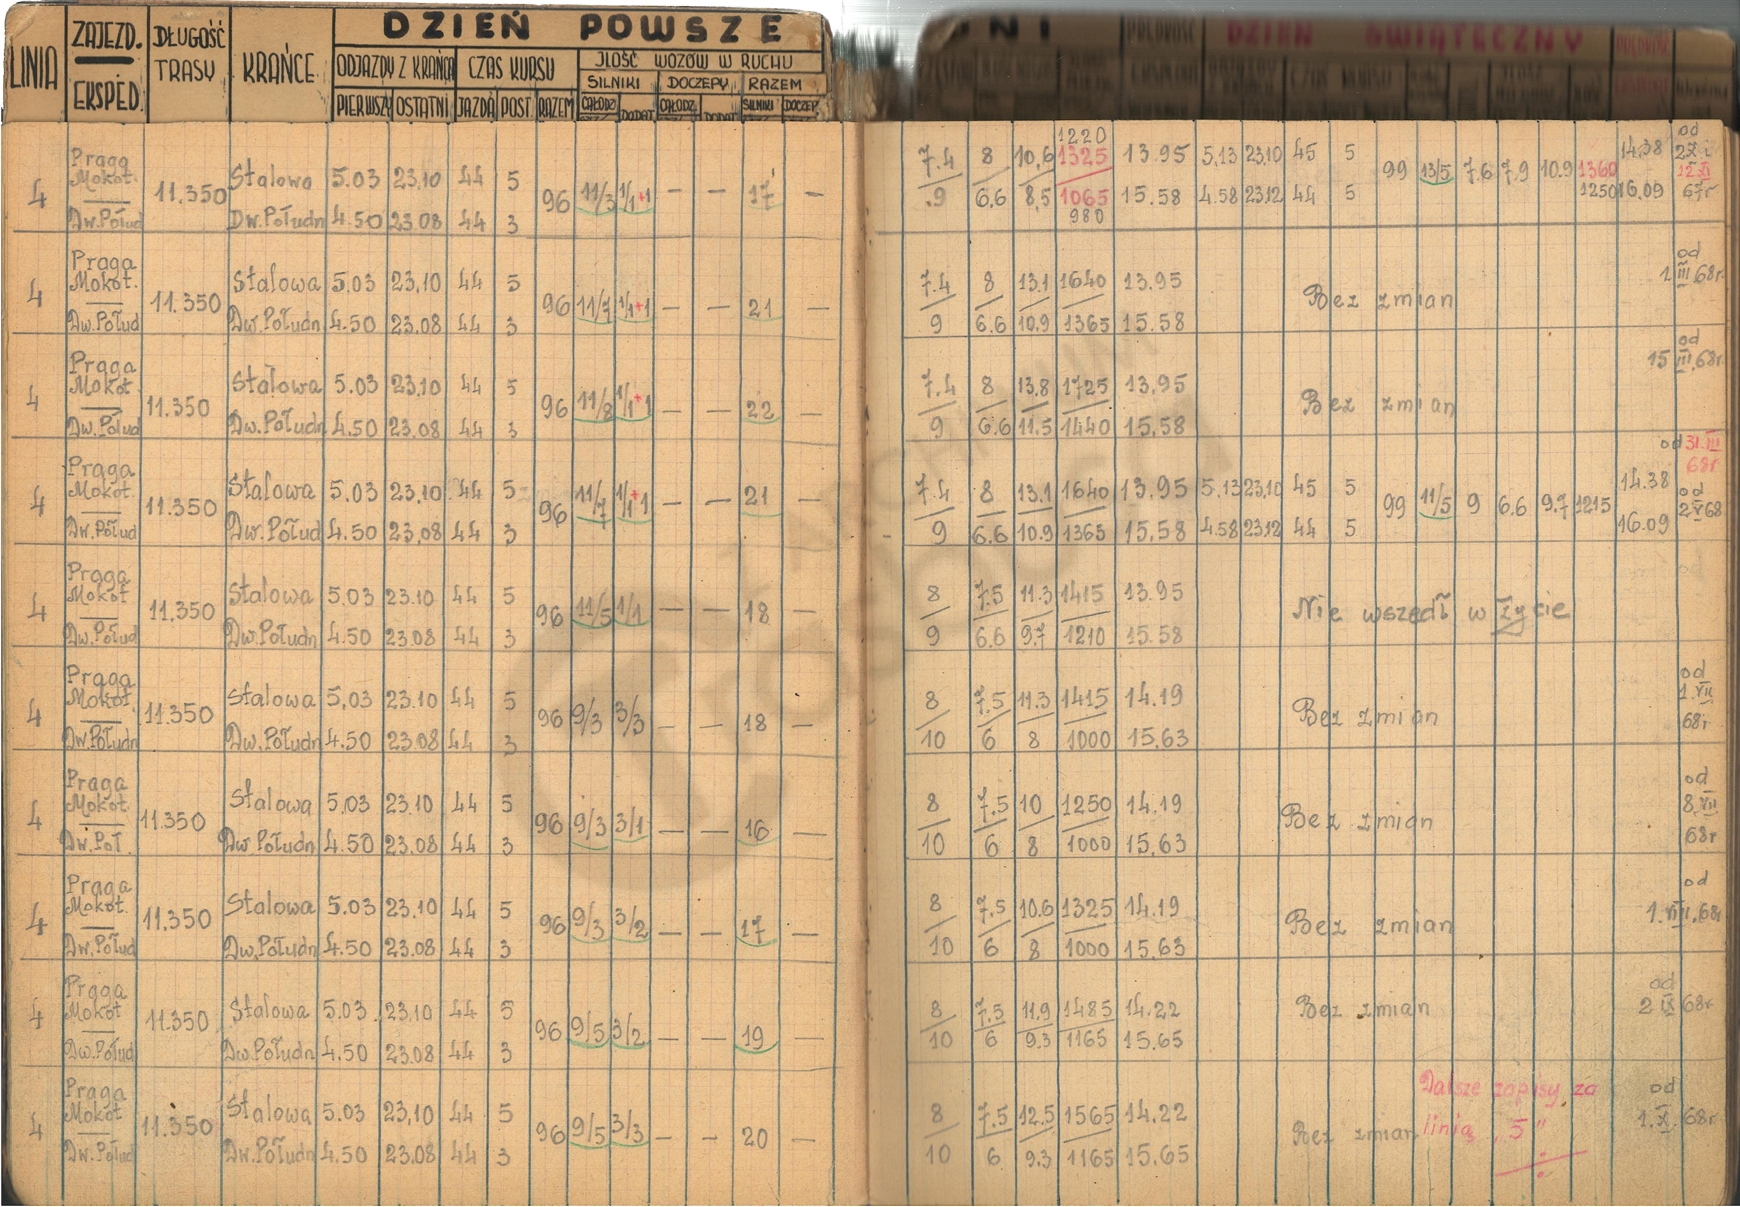 DZIEŃ POWSZE
LINIA ZAJEZD. DŁUGOŚĆ TRASY KRAŃCE
EKSPED.
ODJAZDY Z KRAŃCA CZAS KURSU JLOŚĆ WOZÓW W RUCHU
SILNIKI DOCZEPY RAZEM
PIERWSZY OSTATNI JAZDA POST. RAZEM CAŁODZ DODAT CAŁODZ DODAT SILNIKI DOCZEP
DNI DZIEŃ ŚWIĄTECZNY
1220 od
Praga Mokot. Stalowa 5.03 23.10 44 5 7.4 8 10,6 1325 13.95 5,13 23,10 45 5 14.38
4 11.350 96 11/3 1/1+1 — — 17 — 99 13/5 7.6 7.9 10.9 1360
Dw.Połud Dw.Połudn 4.50 23.08 44 3 .9 6.6 8,5 1065 15.58 4.58 23,12 44 5 1250 16.09 67r
980
od
Praga Mokot. Stalowa 5.03 23,10 44 5 7.4 8 13.1 1640 13.95 1 III 68r.
4 11.350 96 11/7 1/1+1 — — 21 — Bez zmian
Dw.Połud Dw.Połudn 4.50 23.08 44 3 9 6.6 10,9 1365 15.58
od
Praga Mokot. Stalowa 5.03 23,10 44 5 7.4 8 13,8 1725 13,95 15 III.68r.
4 11.350 96 11/8 1/1+1 — — 22 — Bez zmian
Dw.Połud Dw.Połudn 4.50 23.08 44 3 9 6.6 11.5 1440 15,58
od 31.III 68r
Praga Mokot. Stalowa 5.03 23,10 44 5 7.4 8 13.1 1640 13.95 5,13 23,10 45 5 14.38
4 11.350 96 11/7 1/1+1 — — 21 — 99 11/5 9 6.6 9.7 1215 od 2 V 68
Dw.Połud Dw.Połud 4.50 23,08 44 3 9 6.6 10.9 1365 15,58 4.58 23,12 44 5 16.09
Praga Mokot Stalowa 5.03 23.10 44 5 8 7.5 11.3 1415 13.95
4 11.350 96 11/5 1/1 — — 18 — Nie wszedł w życie
Dw.Połud Dw.Połudn 4.50 23.08 44 3 9 6.6 9.7 1210 15.58
od
Praga Mokot. Stalowa 5,03 23.10 44 5 8 7.5 11.3 1415 14.19 1.VII
4 11.350 96 9/3 3/3 — — 18 — Bez zmian 68r
Dw.Połudn Dw.Połudn 4.50 23.08 44 3 10 6 8 1000 15,63
od
Praga Mokot. Stalowa 5,03 23.10 44 5 8 7.5 10 1250 14.19 8.VII
4 11.350 96 9/3 3/1 — — 16 — Bez zmian
Dw.Poł. Dw Połudn 4.50 23.08 44 3 10 6 8 1000 15,63 68r
od
Praga Mokot. Stalowa 5.03 23,10 44 5 8 7.5 10.6 1325 14.19 1.VIII.68r
4 11.350 96 9/3 3/2 — — 17 — Bez zmian
Dw.Połud Dw.Połudn 4.50 23.08 44 3 10 6 8 1000 15.63
od
Praga Mokot Stalowa 5.03 23,10 44 5 8 7.5 11,9 1485 14.22 2 IX 68r
4 11.350 96 9/5 3/2 — — 19 — Bez zmian
Dw.Połud Dw.Połudn 4.50 23.08 44 3 10 6 9.3 1165 15.65
Dalsze zapisy za od
Praga Mokot Stalowa 5.03 23,10 44 5 8 7.5 12.5 1565 14.22 linią „5" 1.X. 68r
4 11.350 96 9/5 3/3 — — 20 — Bez zmian
Dw.Połud Dw.Połudn 4.50 23.08 44 3 10 6 9.3 1165 15.65